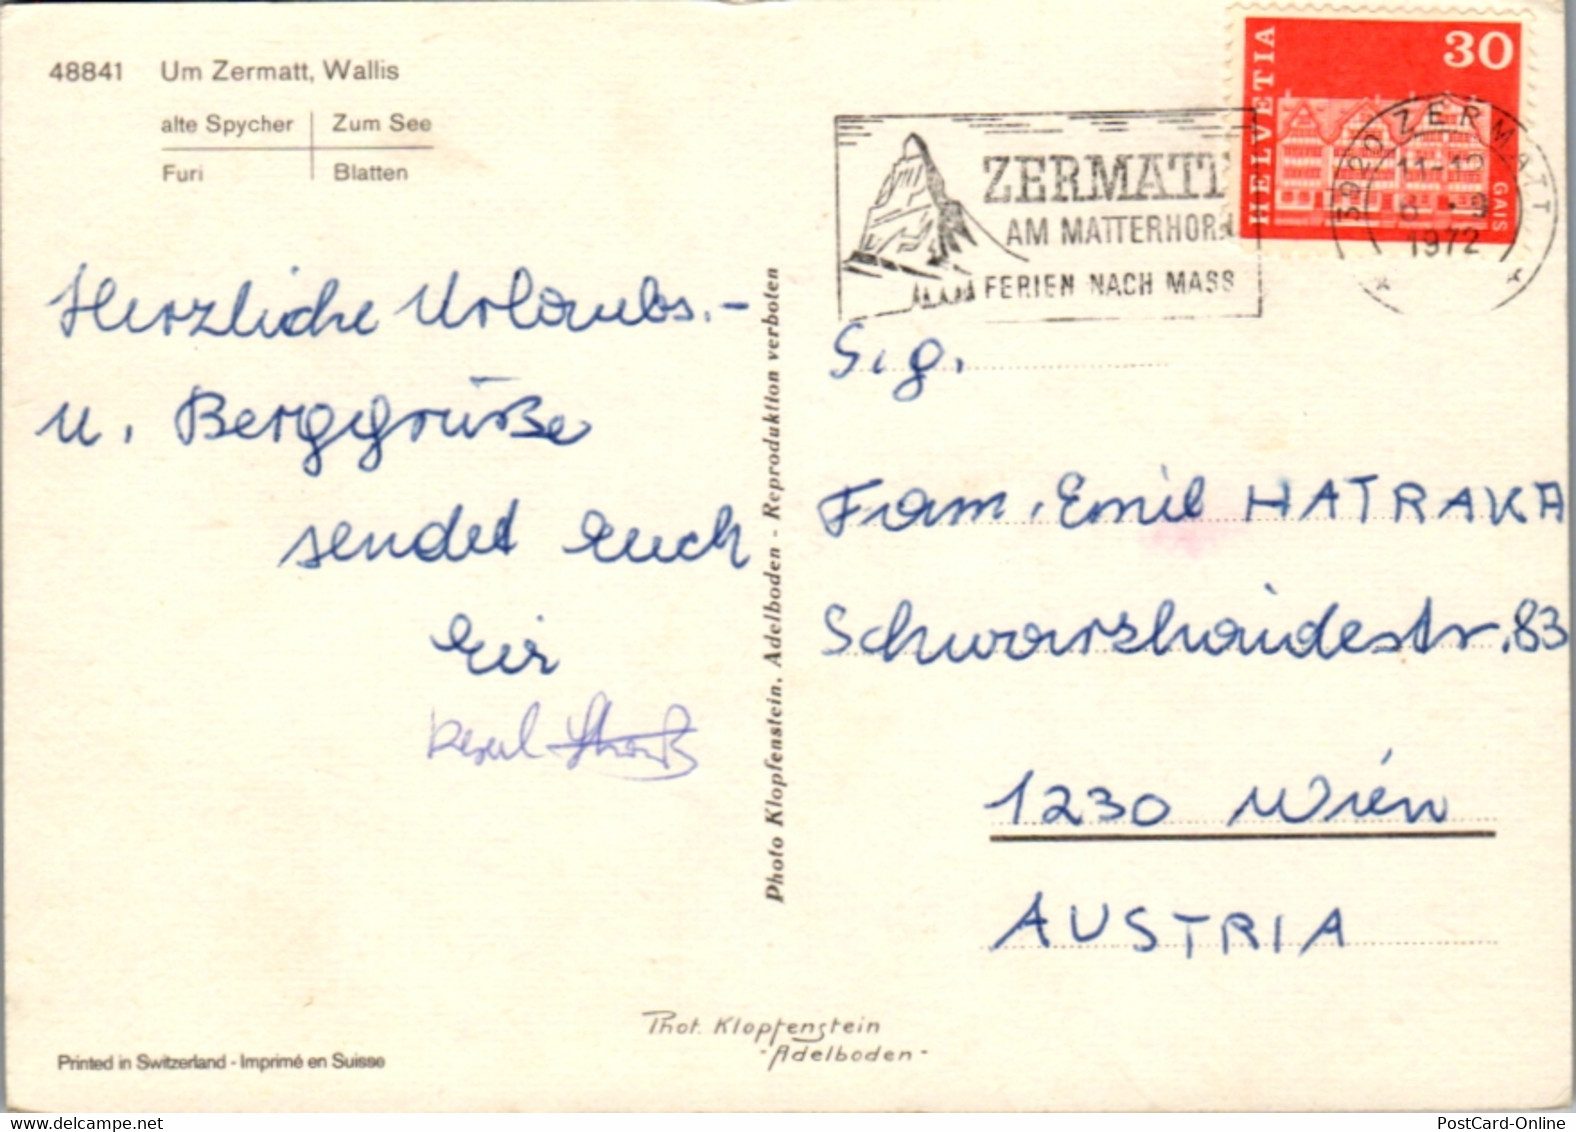 48841 Um Zermatt, Wallis
alte Spycher Zum See
Furi Blatten
Herzliche Urlaubs.-
u. Berggrüße
sendet Euch
Photo Klopfenstein, Adelboden - Reproduktion verboten
HELVETIA
30
GAIS
3920 ZERMATT
11-12
1972
ZERMATT
AM MATTERHORN
FERIEN NACH MASS
Fam. Emil HATRAKA
Schwarzhaidestr. 83
1230 Wien
AUSTRIA
Phot. Klopfenstein
-Adelboden-
Printed in Switzerland - Imprimé en Suisse
PostCard-Online